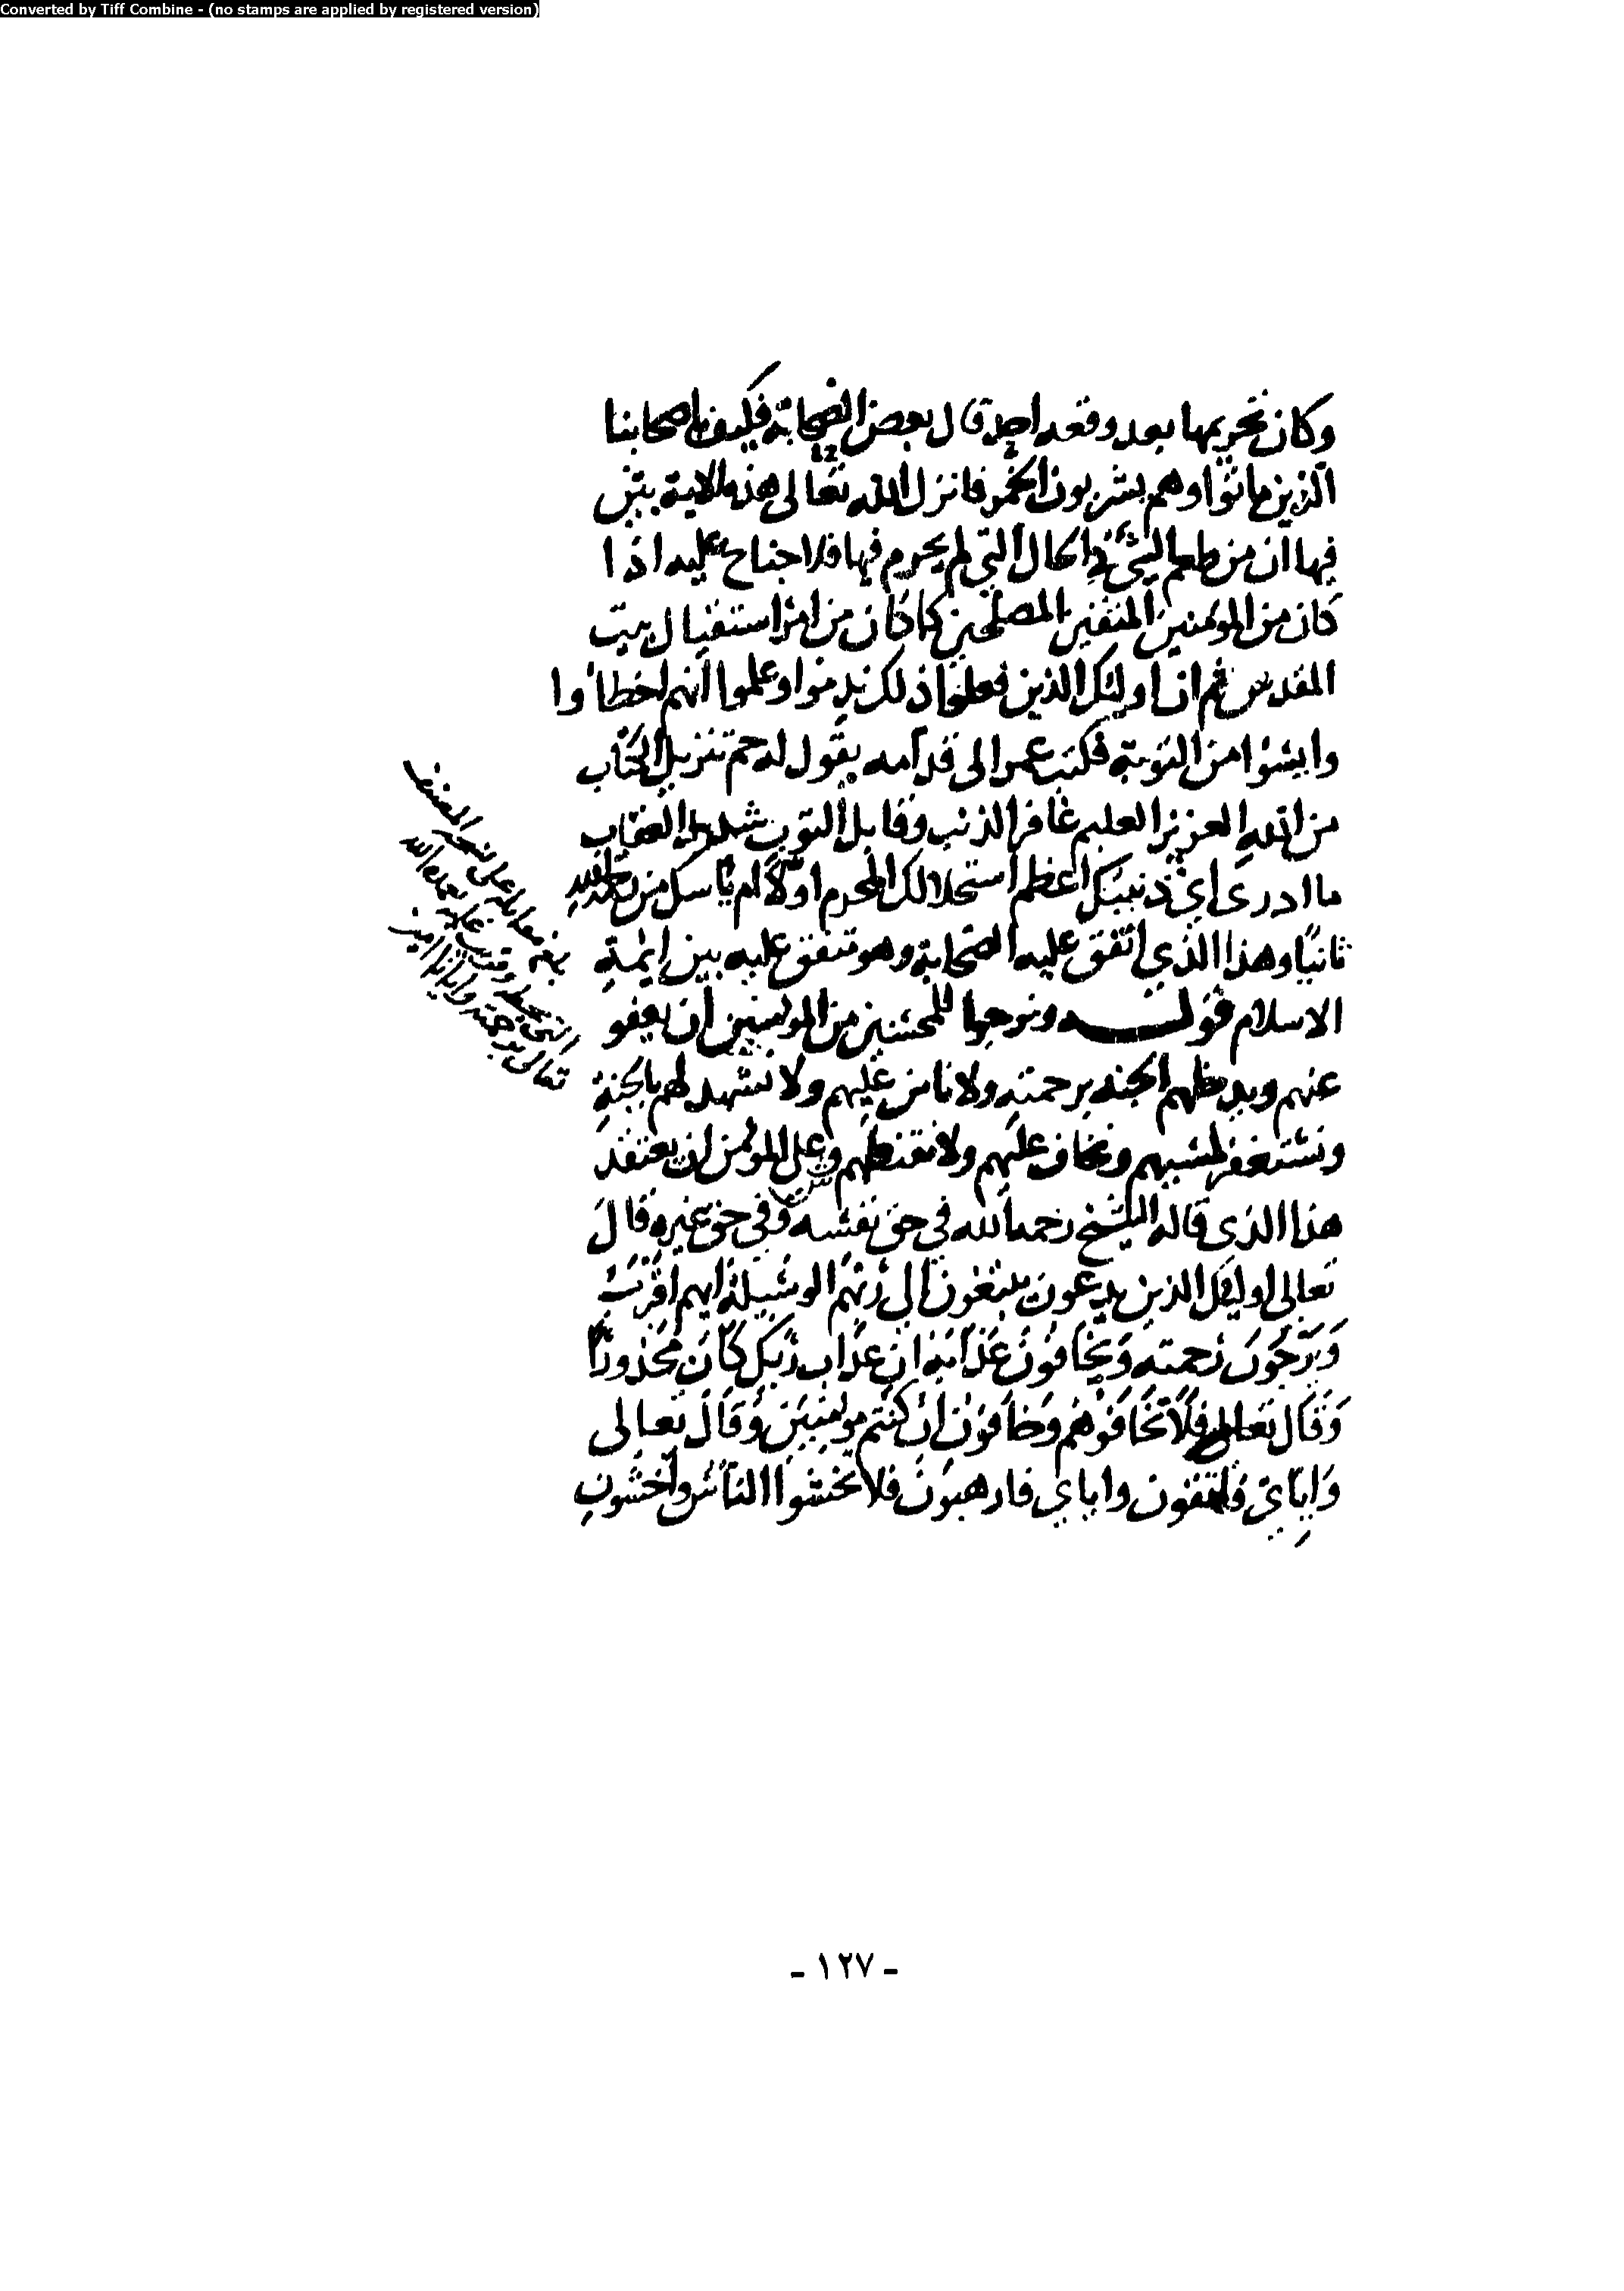 Converted by Tiff Combine - (no stamps are applied by registered version)
وكان تحريمها بعد وقعة احد قال بعض الصحابة فكيف باصحابنا
الذين ماتوا وهم يشربون الخمر فانزل الله تعالى هذه الاية بيّن
فيها أن من طعم الشيء في الحال التي لم يحرم فيها فلا جناح عليه اذا
كان من المؤمنين المتقين المصلحين كما كان من امر استقبال بيت
المقدس ثم ان اوليك الذين فعلوا ذلك ندموا وعلموا انهم اخطاؤا
وايسوا من التوبة فكتب عمر الى قدامه يقول له حم تنزيل الكتاب
من الله العزيز العليم غافر الذنب وقابل التوب شديد العقاب
ما ادرى اي ذنبيك اعظم استحلالك المحرم اولا ام ياسك من رحمة الله
ثانيا وهذا الذي اتفق عليه الصحابة وهو متفق عليه بين ايمة
الاسلام قوله ونرجوا للمحسنين من المؤمنين ان يعفو
عنهم ويدخلهم الجنة برحمته ولا نامن عليهم ولا نشهد لهم بالجنة
ونستغفر لمسيهم ونخاف عليهم ولا نقنطهم وعلى المؤمن ان يعتقد
هذا الذى قاله الشيخ رحمه الله في حق نفسه وفى حق غيره قال
تعالى اوليك الذين يدعون يبتغون الى ربهم الوسيلة ايهم اقرب
ويرجون رحمته ويخافون عذابه ان عذاب ربك كان محذورا
وقال تعالى فلا تخافوهم وخافون ان كنتم مومنين وقال تعالى
وإياي فاتقون واياي فارهبون فلا تخشوا الناس واخشون
بلغ مقابلة على نسخة المصنف
تعالى برحمته وايانا امين
- ١٢٧ -